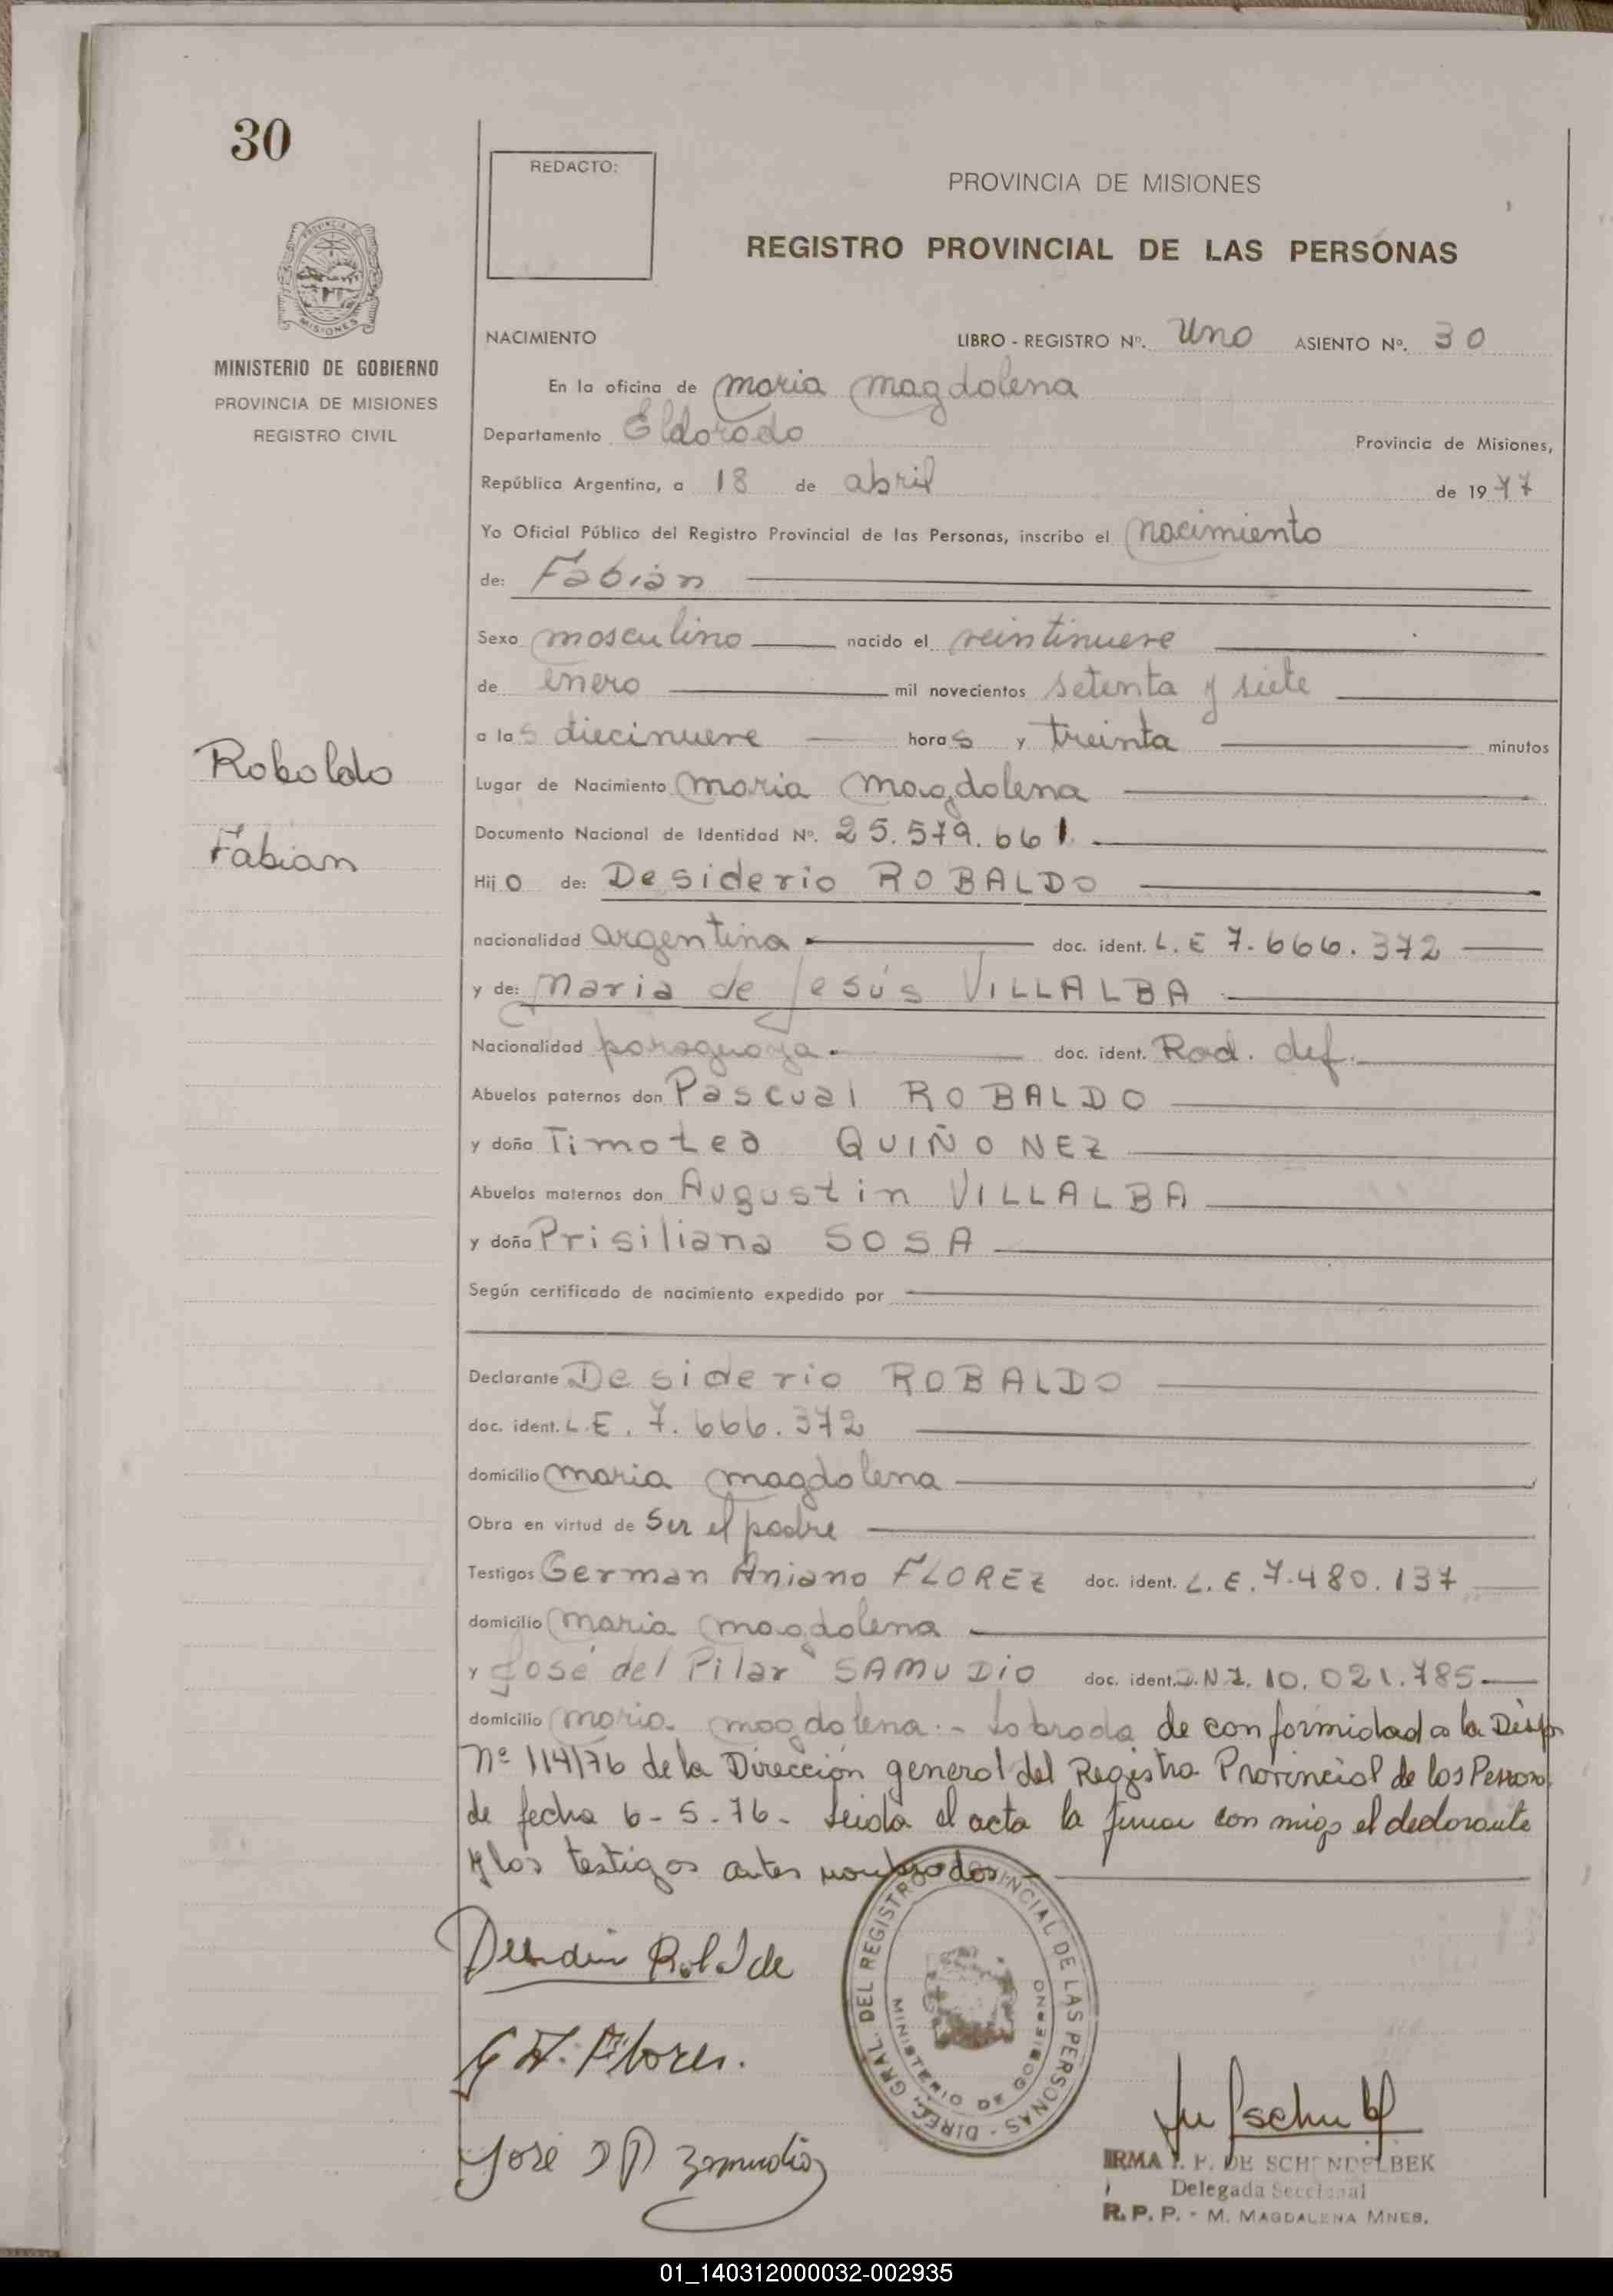 30
REDACTO:
PROVINCIA DE MISIONES
REGISTRO PROVINCIAL DE LAS PERSONAS
PROVINCIA DE MISIONES
MINISTERIO DE GOBIERNO
PROVINCIA DE MISIONES
REGISTRO CIVIL
NACIMIENTO LIBRO - REGISTRO Nº. Uno ASIENTO Nº. 30
En la oficina de Maria Magdalena
Departamento Eldorado Provincia de Misiones,
República Argentina, a 18 de abril de 1977
Yo Oficial Público del Registro Provincial de las Personas, inscribo el Nacimiento
de: Fabián
Sexo masculino nacido el veintinueve
de enero mil novecientos setenta y siete
a las diecinueve horas y treinta minutos
Robaldo
Lugar de Nacimiento Maria Magdalena
Documento Nacional de Identidad Nº. 25.579.661
Fabian
Hijo de: Desiderio ROBALDO
nacionalidad argentina doc. ident. L. E 7.666.372
y de: Maria de Jesús VILLALBA
Nacionalidad paraguaya. doc. ident. Rad. def.
Abuelos paternos don Pascual ROBALDO
y doña Timotea QUIÑONEZ
Abuelos maternos don Augustin VILLALBA
y doña Prisiliana SOSA
Según certificado de nacimiento expedido por
Declarante Desiderio ROBALDO
doc. ident. L.E. 7.666.372
domicilio Maria Magdalena
Obra en virtud de Ser el padre
Testigos German Aniano FLOREZ doc. ident. L.E. 7.480.137
domicilio Maria Magdalena
y José del Pilar SAMUDIO doc. ident. D.N.I. 10.021.785
domicilio Maria Magdalena.- Labrada de conformidad a la Disp.
Nº 114/76 de la Dirección general del Registro Provincial de las Personas
de fecha 6-5-76- Leida el acta la firman con migo el declarante
y los testigos antes nombrados.-
DIREC. GRAL. DEL REGISTRO PROVINCIAL DE LAS PERSONAS -
MINISTERIO DE GOBIERNO
G A. Flores.
José D P Zamudio
IRMA DE SCHENDELBEK
Delegada Seccional
R. P. P. - M. MAGDALENA MNES.
01_140312000032-002935